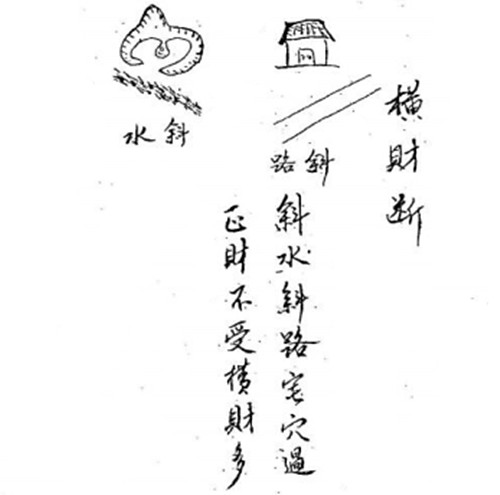 橫財断
斜路
斜水斜路宅穴過
正財不受橫財多
斜水